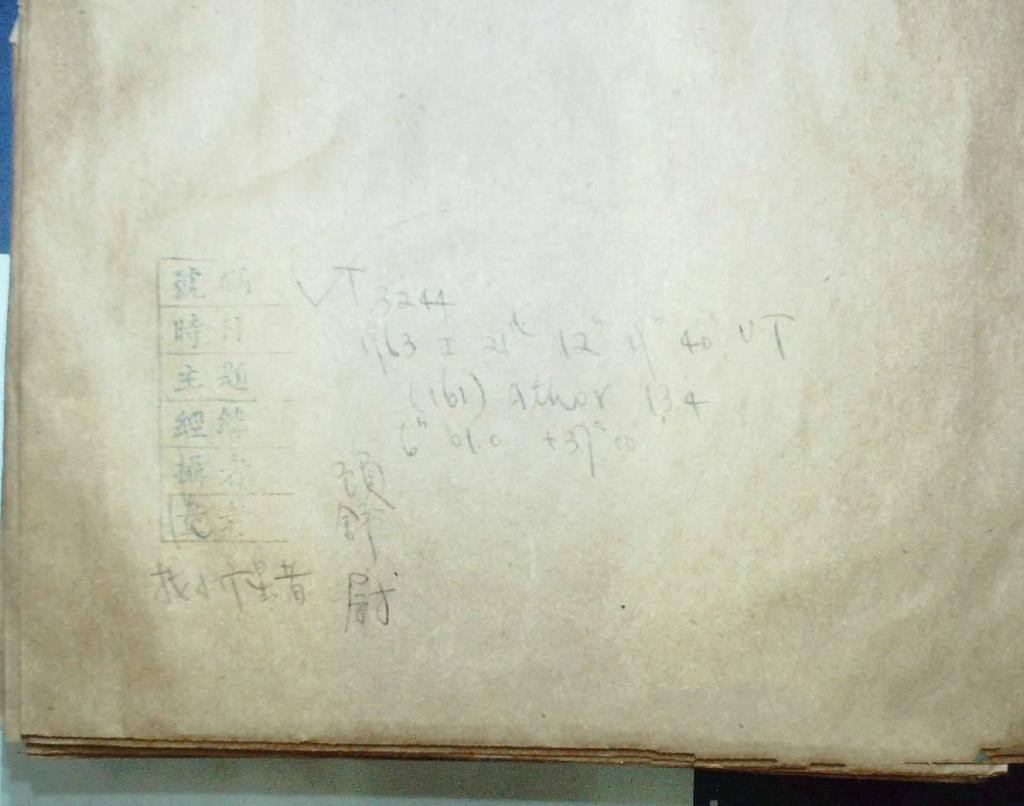 號碼 VT 3244
時日 1963 I 21ᵈ 12ʰ 17ᵐ 40ˢ UT
主題 (161) Athor 134
經緯 6ʰ 01.0 +37°
攝者 頭
舒
找小行星者 尉